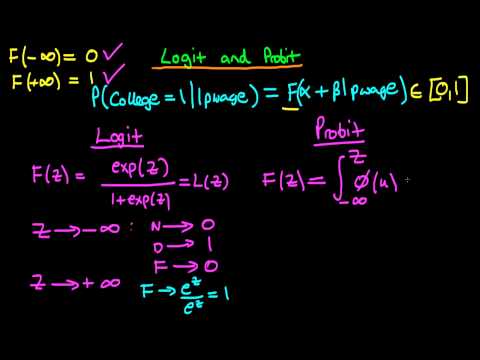 F(-∞) = 0 ✓
F(+∞) = 1 ✓
Logit and Probit
P(College = 1 | lpwage) = F(α + β lpwage) ∈ [0,1]
Logit
F(z) = exp(z) / 1+exp(z) = L(z)
Z → -∞ : N → 0
D → 1
F → 0
Z → +∞
F → e^z / e^z = 1
Probit
F(z) = ∫_{-∞}^{z} ϕ(u)